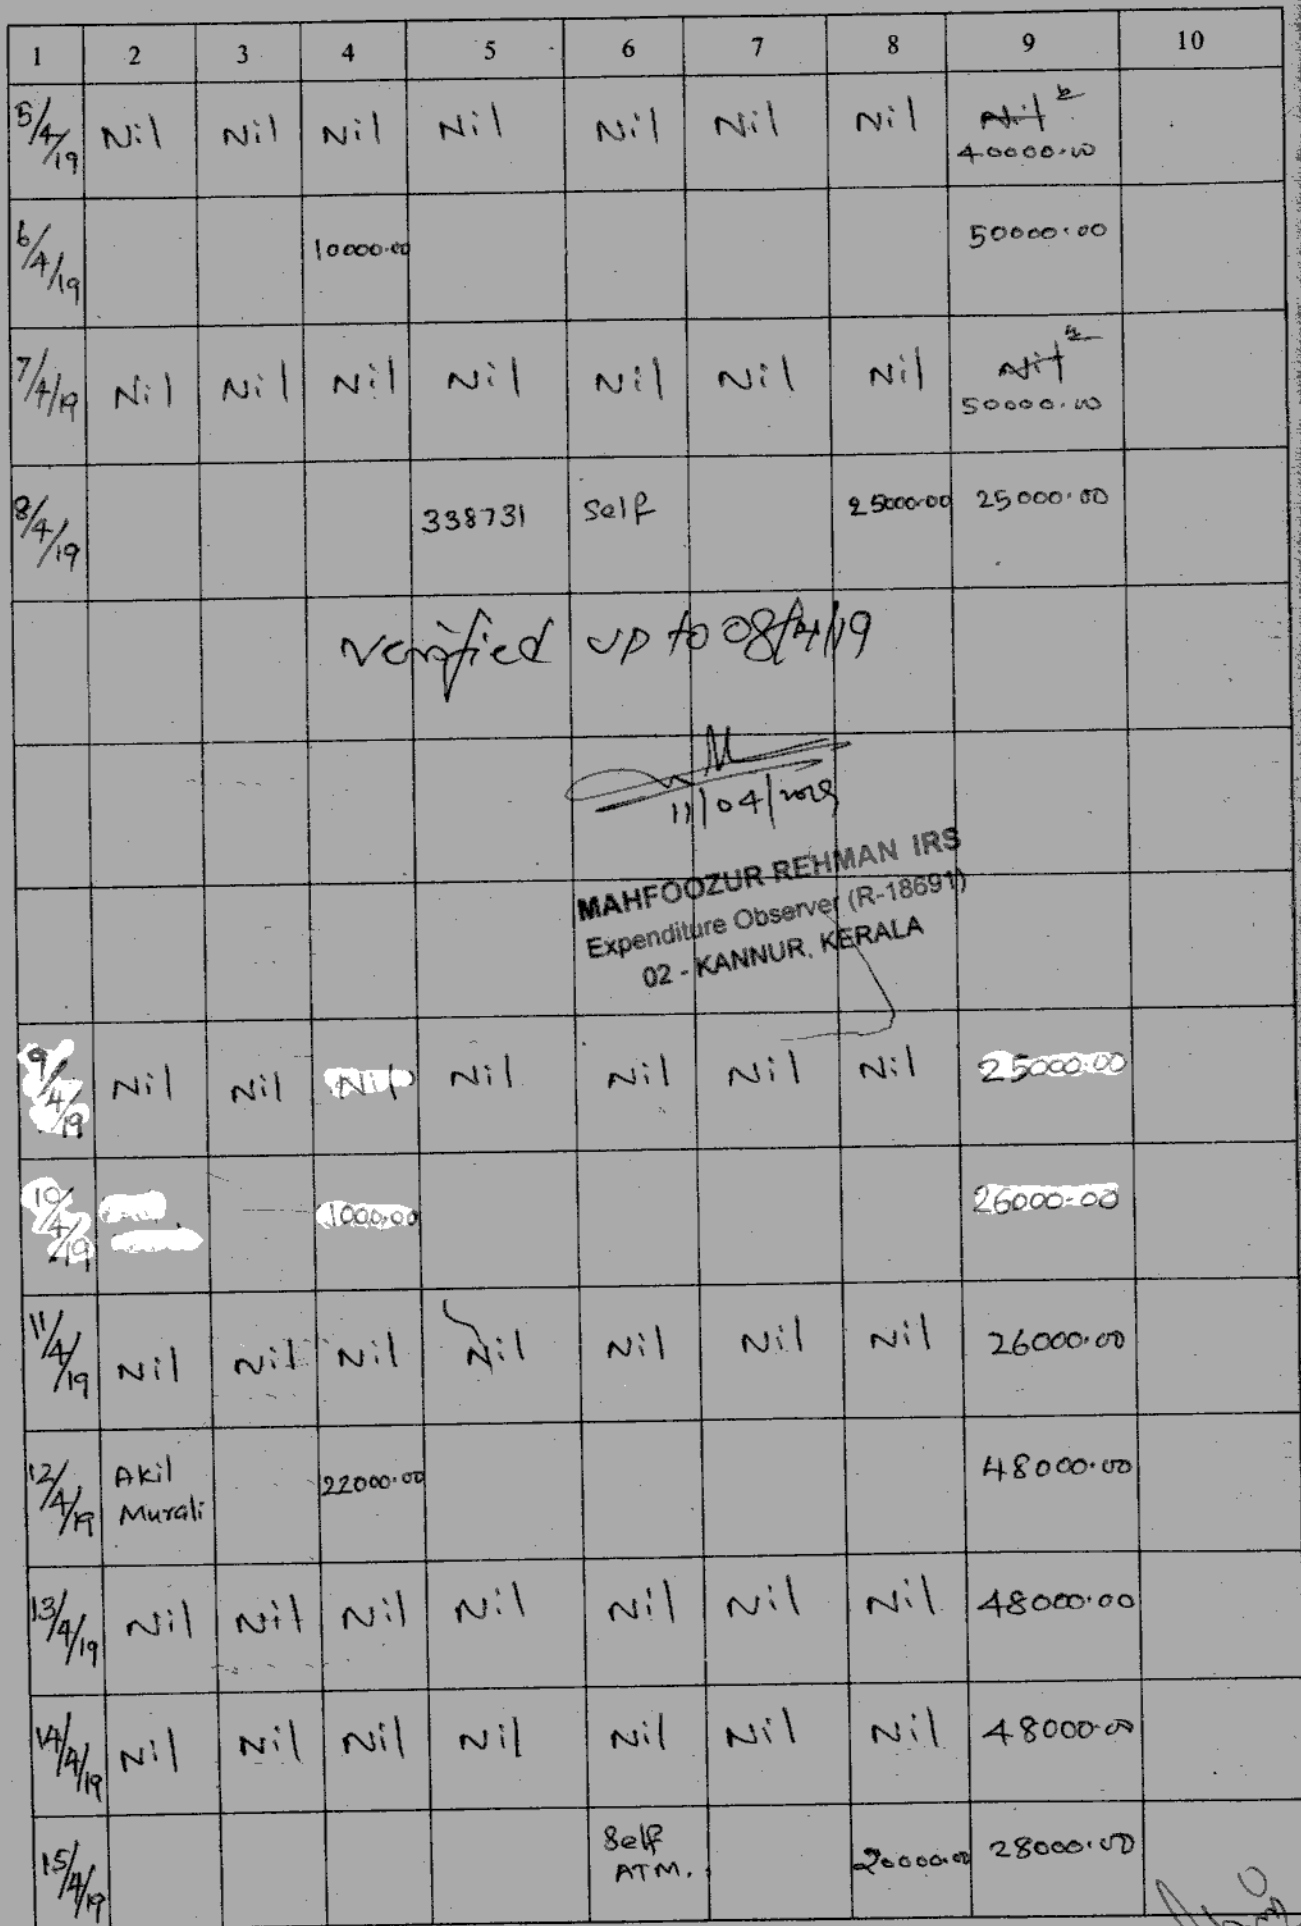 1 2 3 4 5 6 7 8 9 10
5/4/19 Nil Nil Nil Nil Nil Nil Nil Nil
40000.00
6/4/19 10000.00 50000.00
7/4/19 Nil Nil Nil Nil Nil Nil Nil Nil
50000.00
8/4/19 338731 Self 25000.00 25000.00
Verified up to 08/4/19
11/04/2019
MAHFOOZUR REHMAN IRS
Expenditure Observer (R-18691)
02 - KANNUR, KERALA
9/4/19 Nil Nil Nil Nil Nil Nil Nil 25000.00
10/4/19 1000.00 26000.00
11/4/19 Nil Nil Nil Nil Nil Nil Nil 26000.00
12/4/19 Akil
Murali 22000.00 48000.00
13/4/19 Nil Nil Nil Nil Nil Nil Nil 48000.00
14/4/19 Nil Nil Nil Nil Nil Nil Nil 48000.00
15/4/19 Self
ATM. 20000.00 28000.00